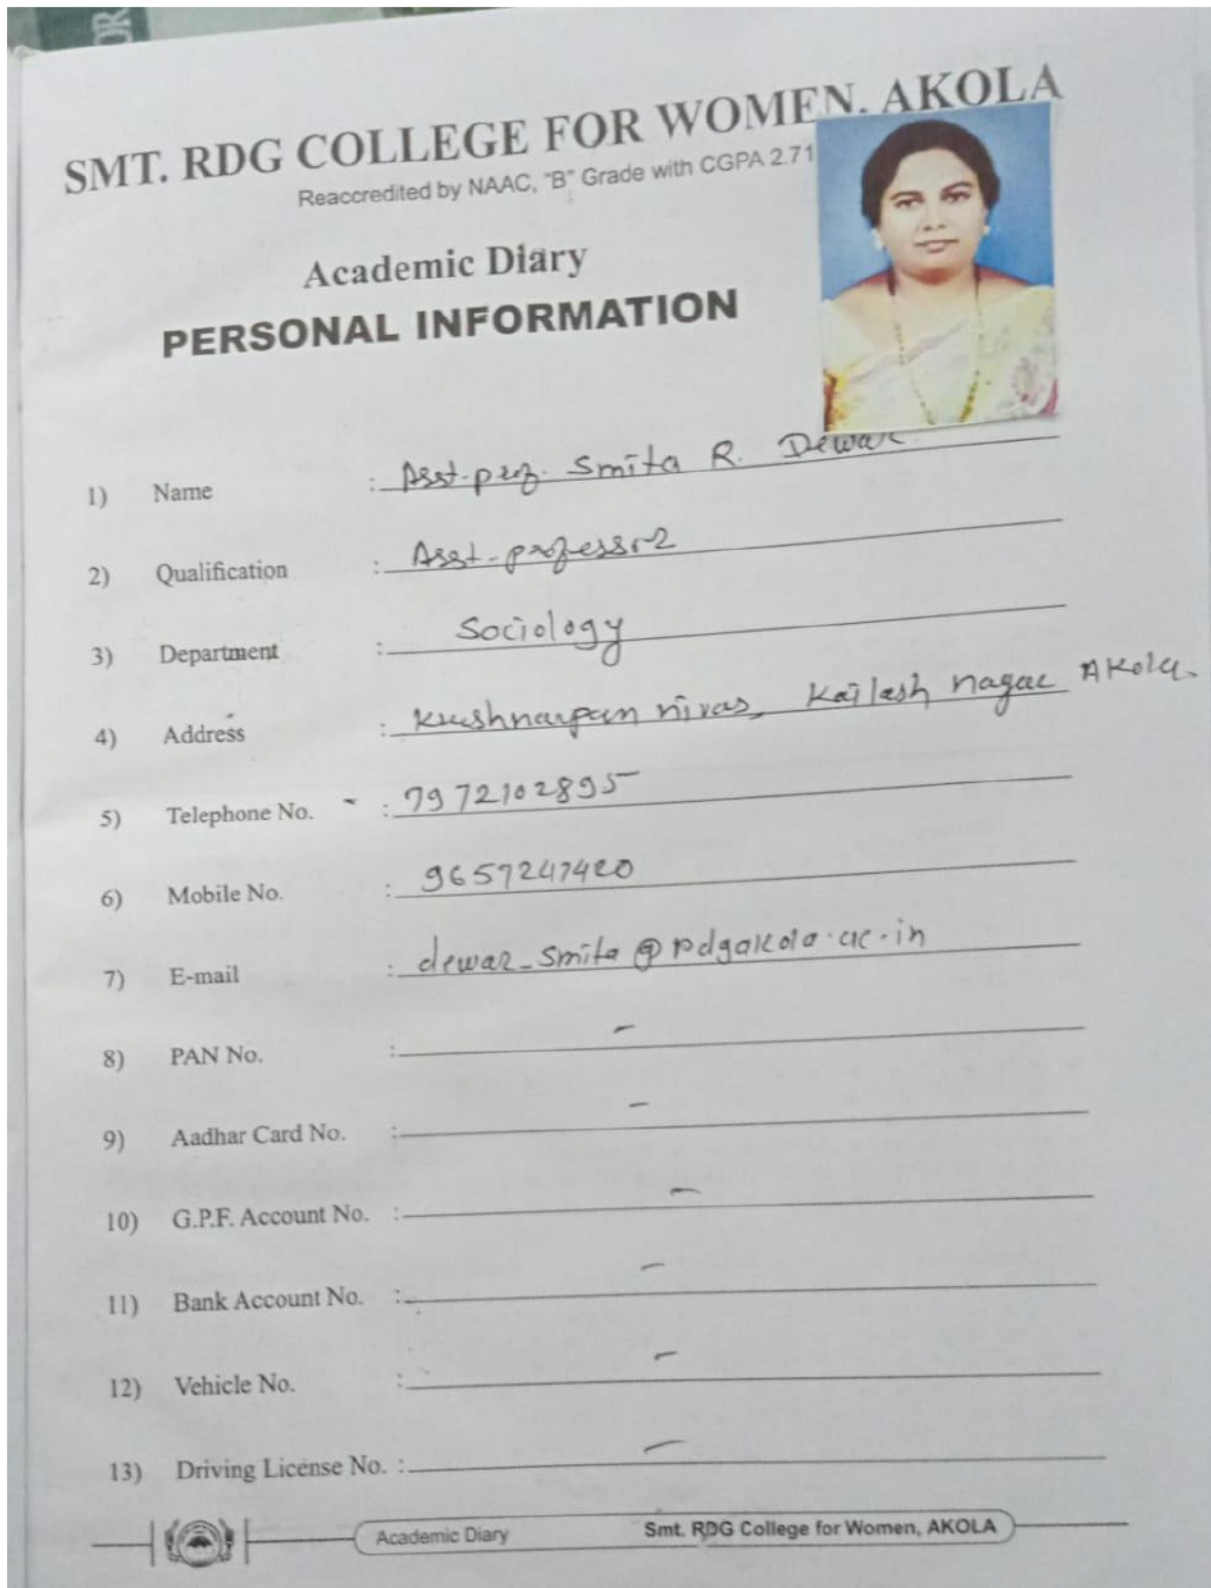 OR
SMT. RDG COLLEGE FOR WOMEN, AKOLA
Reaccredited by NAAC, "B" Grade with CGPA 2.71
Academic Diary
PERSONAL INFORMATION
1) Name : Asst-prof. Smita R. Dewar
2) Qualification : Asst-professor
3) Department : Sociology
4) Address : Krushnarpan nivas, Kailash nagar Akola.
5) Telephone No. - : 7972102895
6) Mobile No. : 9657247420
7) E-mail : dewar_smita@rdgakola.ac.in
8) PAN No. : -
9) Aadhar Card No. : -
10) G.P.F. Account No. : -
11) Bank Account No. : -
12) Vehicle No. : -
13) Driving License No. : -
Academic Diary Smt. RDG College for Women, AKOLA